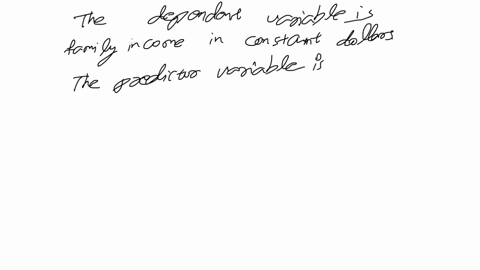 The dependent variable is
family income in constant dollars
The predictor variable is